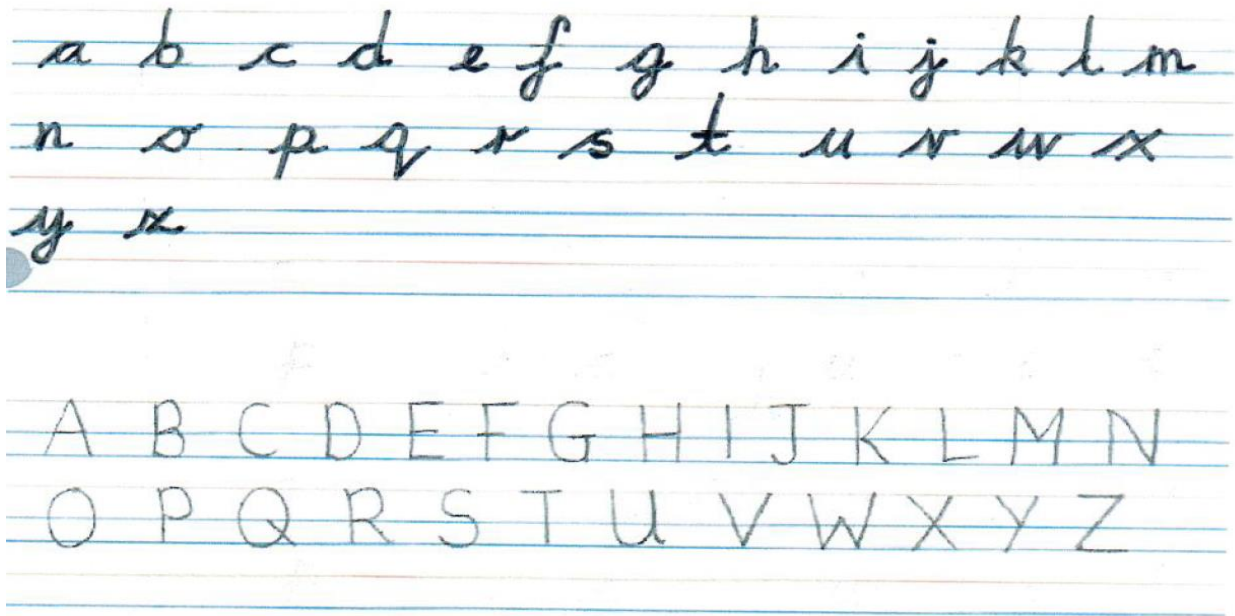 a b c d e f g h i j k l m
n o p q r s t u v w x
y z
A B C D E F G H I J K L M N
O P Q R S T U V W X Y Z